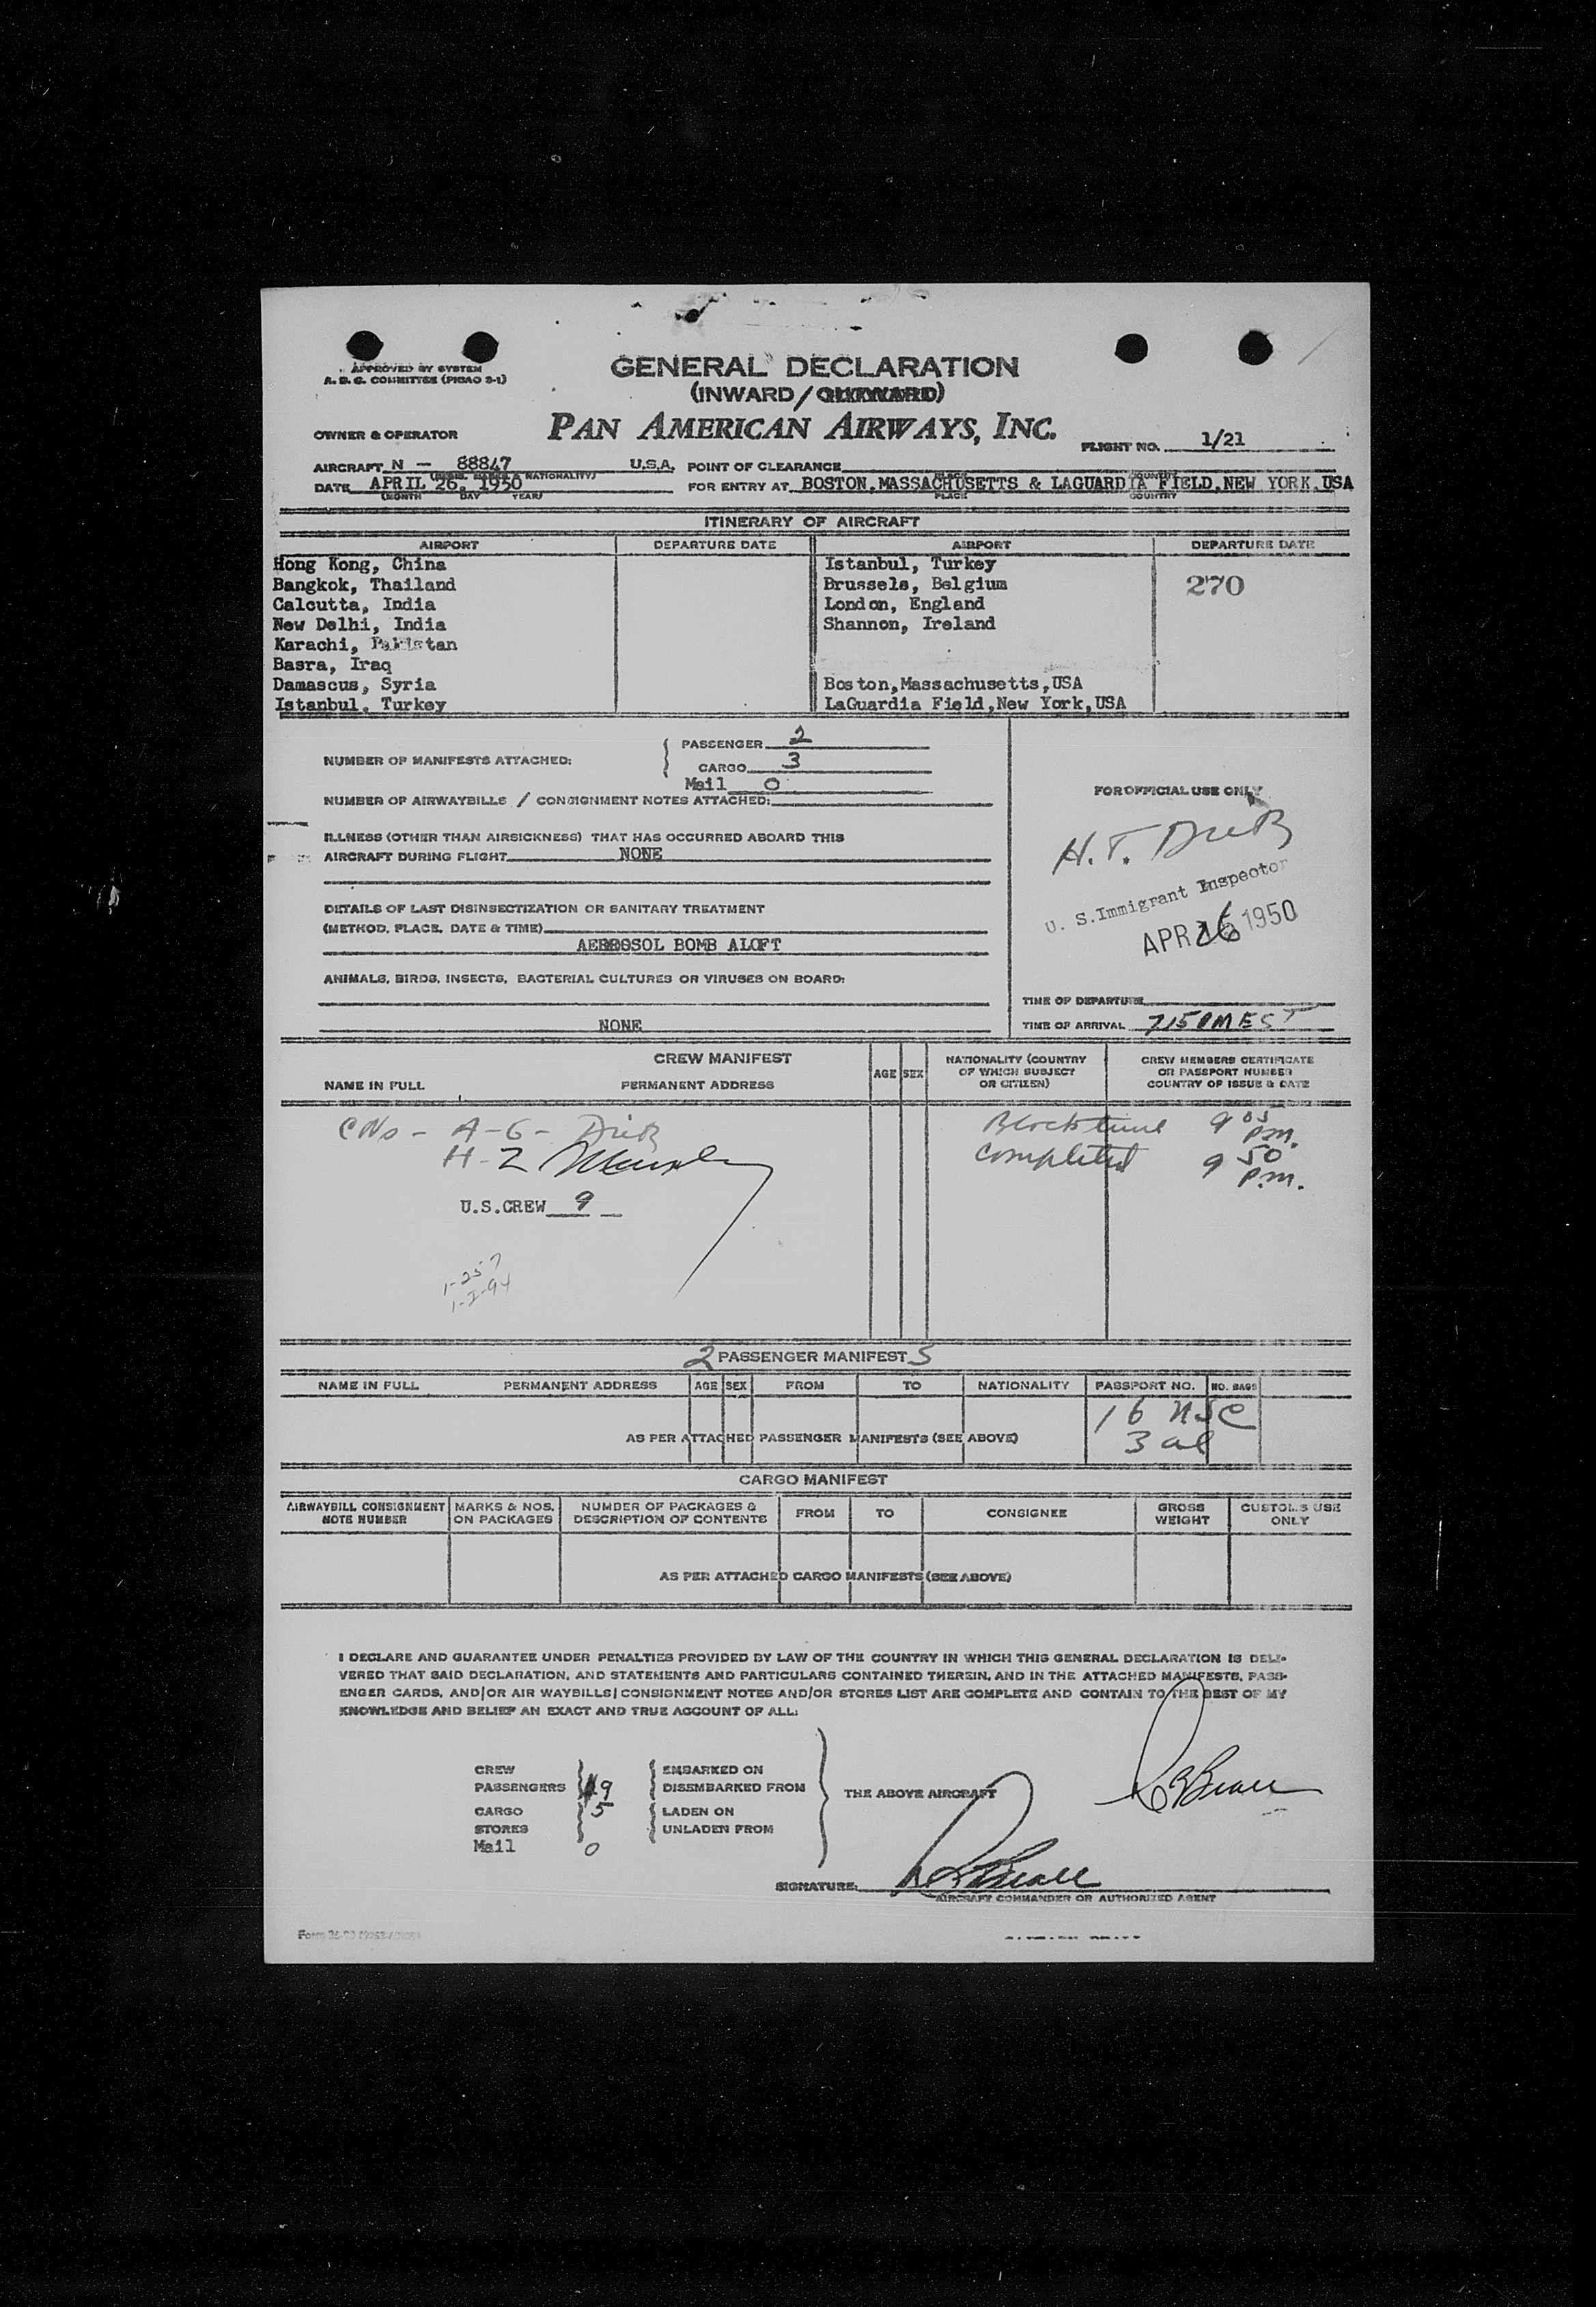 APPROVED BY SYSTEM
A. D. C. COMMITTEE (PICAO 2-1)
GENERAL DECLARATION
(INWARD / OUTWARD)
OWNER & OPERATOR
PAN AMERICAN AIRWAYS, INC.
FLIGHT NO. 1/21
AIRCRAFT N - 88847 U.S.A. POINT OF CLEARANCE
NATIONALITY)
DATE APRIL 26, 1950 FOR ENTRY AT BOSTON,MASSACHUSETTS & LAGUARDIA FIELD,NEW YORK,USA
(MONTH DAY YEAR) PLACE COUNTRY
ITINERARY OF AIRCRAFT
AIRPORT DEPARTURE DATE AIRPORT DEPARTURE DATE
Hong Kong, China Istanbul, Turkey
Bangkok, Thailand Brussels, Belgium 270
Calcutta, India London, England
New Delhi, India Shannon, Ireland
Karachi, Pakistan
Basra, Iraq
Damascus, Syria Boston,Massachusetts,USA
Istanbul, Turkey LaGuardia Field,New York,USA
NUMBER OF MANIFESTS ATTACHED:
PASSENGER 2
CARGO 3
Mail 0
NUMBER OF AIRWAYBILLS / CONSIGNMENT NOTES ATTACHED:
FOR OFFICIAL USE ONLY
ILLNESS (OTHER THAN AIRSICKNESS) THAT HAS OCCURRED ABOARD THIS
AIRCRAFT DURING FLIGHT NONE
H. T.
U. S. Immigrant Inspector
APR 26 1950
DETAILS OF LAST DISINSECTIZATION OR SANITARY TREATMENT
(METHOD, PLACE, DATE & TIME)
AEROSOL BOMB ALOFT
ANIMALS, BIRDS, INSECTS, BACTERIAL CULTURES OR VIRUSES ON BOARD:
NONE
TIME OF DEPARTURE
TIME OF ARRIVAL 715PM EST
CREW MANIFEST
NAME IN FULL PERMANENT ADDRESS AGE SEX
NATIONALITY (COUNTRY OF WHICH SUBJECT OR CITIZEN)
CREW MEMBERS CERTIFICATE OR PASSPORT NUMBER COUNTRY OF ISSUE & DATE
Block time 9 05 p.m.
completed 9 50 p.m.
U.S.CREW 9
1-257
1-I-94
2 PASSENGER MANIFEST S
NAME IN FULL PERMANENT ADDRESS AGE SEX FROM TO NATIONALITY PASSPORT NO. NO. BAGS
16 USC
AS PER ATTACHED PASSENGER MANIFESTS (SEE ABOVE)
3 al
CARGO MANIFEST
AIRWAYBILL CONSIGNMENT NOTE NUMBER
MARKS & NOS. ON PACKAGES
NUMBER OF PACKAGES & DESCRIPTION OF CONTENTS
FROM TO CONSIGNEE
GROSS WEIGHT
CUSTOMS USE ONLY
AS PER ATTACHED CARGO MANIFESTS (SEE ABOVE)
I DECLARE AND GUARANTEE UNDER PENALTIES PROVIDED BY LAW OF THE COUNTRY IN WHICH THIS GENERAL DECLARATION IS DELI-
VERED THAT SAID DECLARATION, AND STATEMENTS AND PARTICULARS CONTAINED THEREIN, AND IN THE ATTACHED MANIFESTS, PASS-
ENGER CARDS, AND/OR AIR WAYBILLS/CONSIGNMENT NOTES AND/OR STORES LIST ARE COMPLETE AND CONTAIN TO THE BEST OF MY
KNOWLEDGE AND BELIEF AN EXACT AND TRUE ACCOUNT OF ALL:
CREW EMBARKED ON
PASSENGERS 19 DISEMBARKED FROM
THE ABOVE AIRCRAFT
CARGO 5 LADEN ON
STORES UNLADEN FROM
Mail 0
SIGNATURE:
AIRCRAFT COMMANDER OR AUTHORIZED AGENT